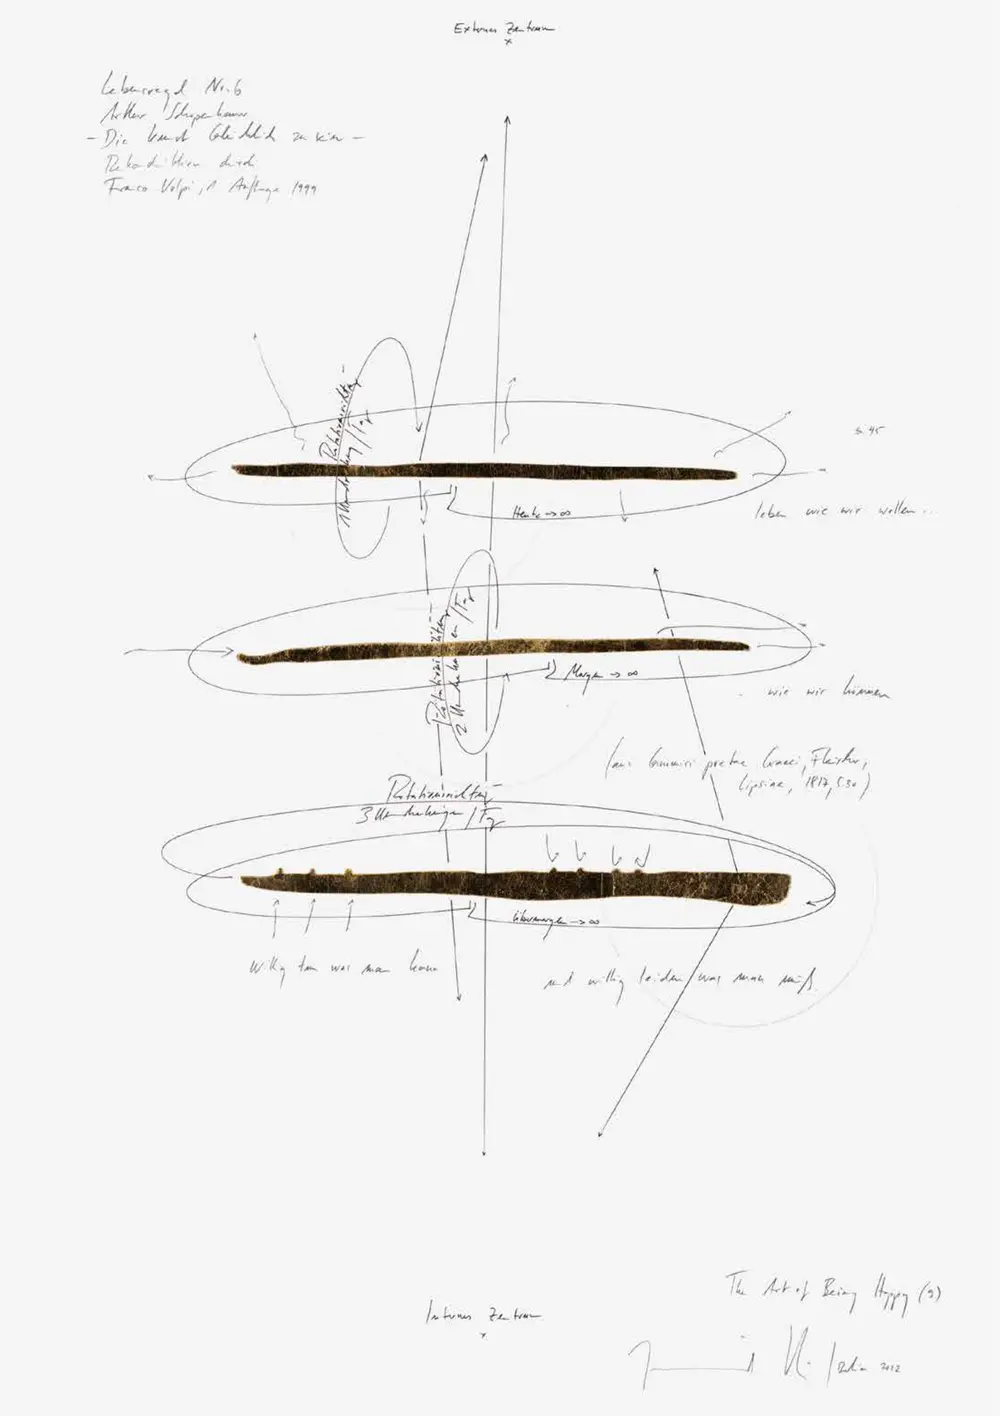 Externes Zentrum
x
Lebensregel Nr. 6
Arthur Schopenhauer
- Die Kunst Glücklich zu sein -
Rekonstruktion durch
Franco Volpi, 1 Auflage 1999
Rotationsrichtung
1 Umdrehung/Tag
S. 45
Heute → ∞
leben wie wir wollen...
Rotationsrichtung
2 Umdrehungen/Tag
Morgen → ∞
wie wir können
Lipsiae, 1817, S. 30)
Rotationsrichtung
3 Umdrehungen/Tag
Übermorgen → ∞
Willig tun was man kann
und willig leiden was man muß.
The Art of Being Happy (9)
Internes Zentrum
x
/Berlin 2012